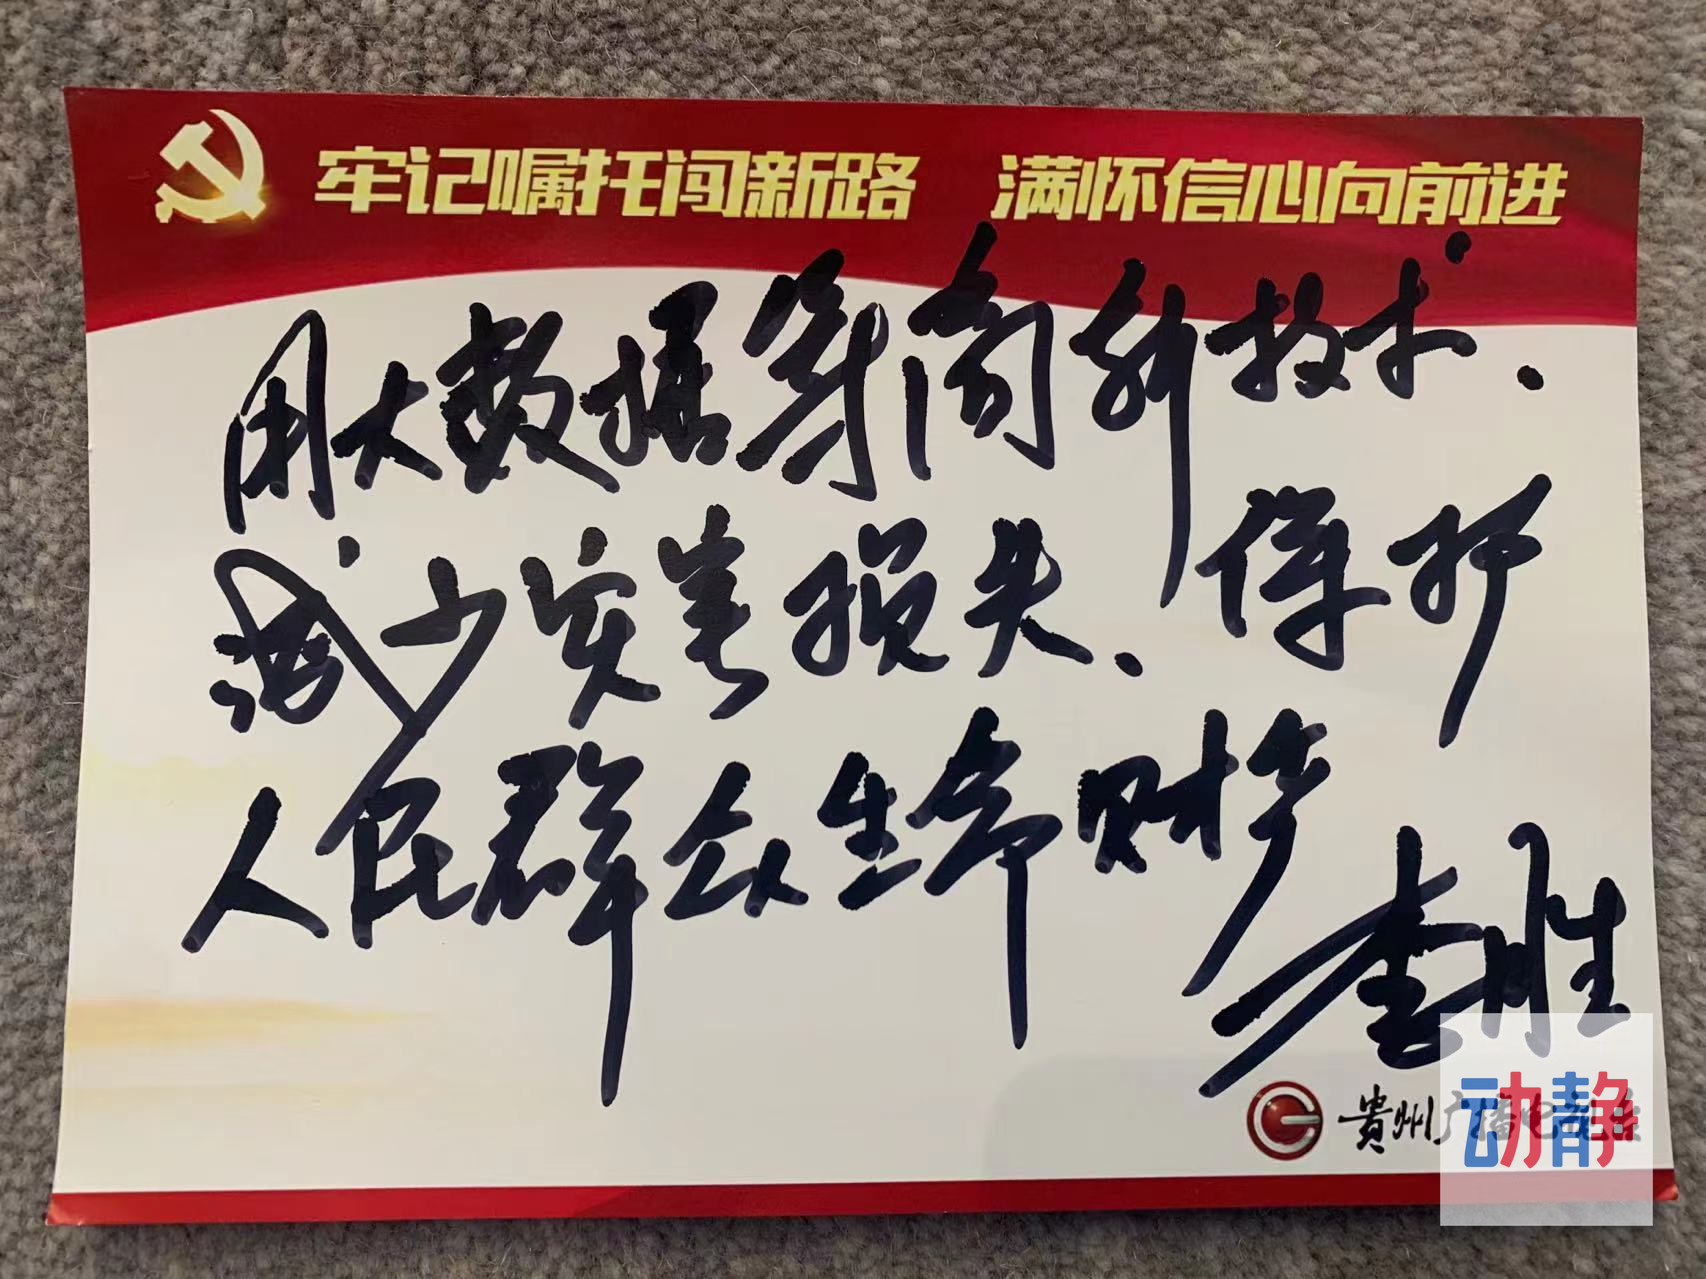 牢记嘱托闯新路 满怀信心向前进
用大数据等高新技术.
减少灾害损失、保护
人民群众生命财产
李胜
贵州广播电视台
动静